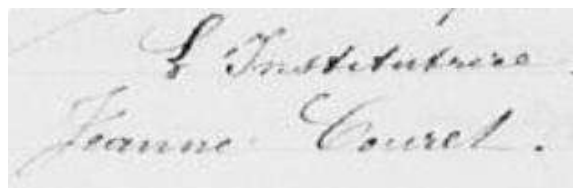 L'Institutrice
Jeanne Couret.